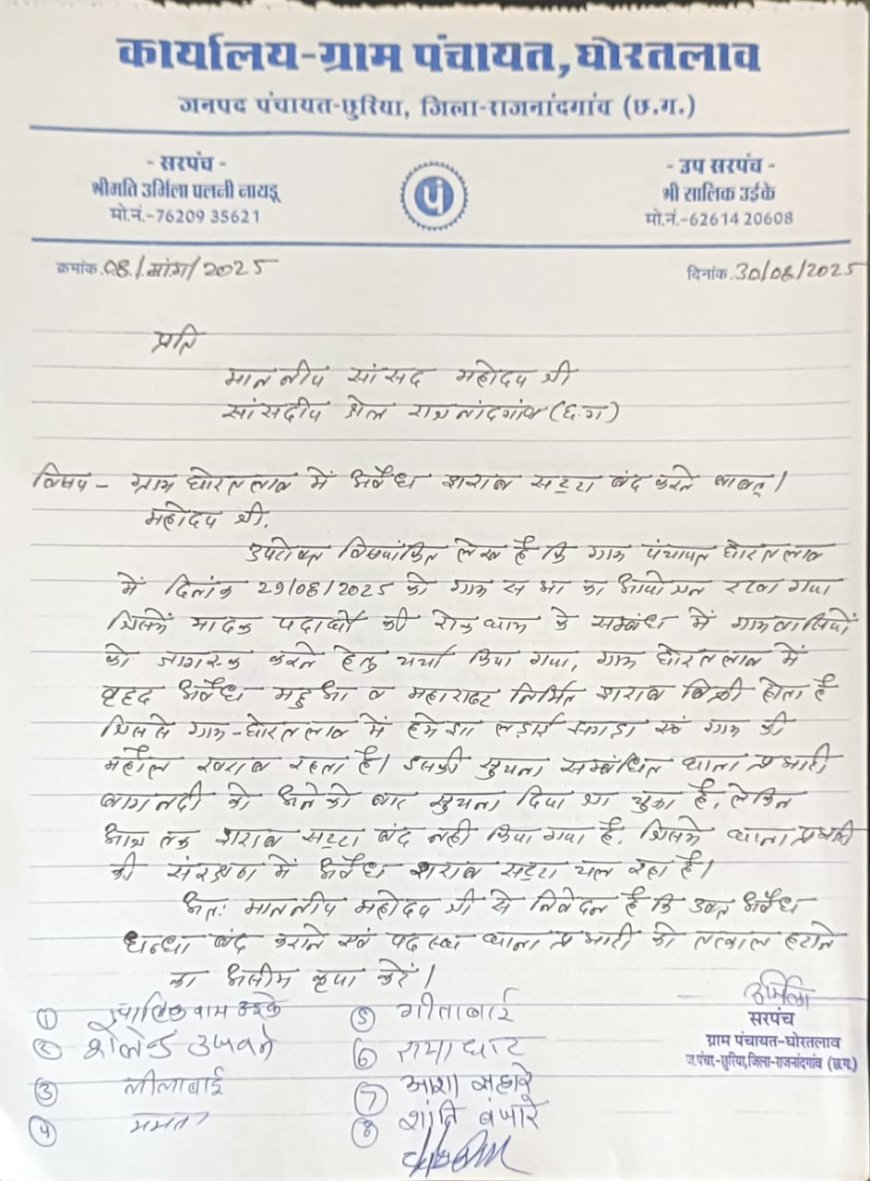 कार्यालय-ग्राम पंचायत, घोरतलाव
जनपद पंचायत-छुरिया, जिला-राजनांदगांव (छ.ग.)
- सरपंच -
श्रीमति उर्मिला पलनी नायडू
मो.नं.-76209 35621
पं
- उप सरपंच -
श्री सालिक उईके
मो.नं.-62614 20608
क्रमांक 08/मांग/2025
दिनांक 30/08/2025
प्रति
माननीय सांसद महोदय श्री
सांसदीय क्षेत्र राजनांदगांव (छ.ग)
विषय - ग्राम घोरतलाव में अवैध शराब सट्टा बंद करने बाबत्।
महोदय श्री,
उपरोक्त विषयांकित लेख है कि ग्राम पंचायत घोरतलाव
में दिनांक 29/08/2025 को ग्राम सभा का आयोजन रखा गया
जिसमें मादक पदार्थो की रोकथाम के सम्बंध में ग्रामवासियों
को जागरूक करने हेतु चर्चा किया गया, ग्राम घोरतलाव में
वृहद अवैध महुआ व महाराष्ट निर्मित शराब बिक्री होता है
जिससे ग्राम-घोरतलाव में हमेशा लड़ाई झगड़ा एवं ग्राम की
महौल खराब रहता है। इसकी सुचना सम्बंधित थाना प्रभारी
बागनदी को अनेको बार सुचना दिया जा चुका है, लेकिन
आज तक शराब सट्टा बंद नही किया गया है, जिसके थाना प्रभारी
की संरक्षण में अवैध शराब सट्टा चल रहा है।
अतः माननीय महोदय श्री से निवेदन है कि उक्त अवैध
धन्धा बंद कराने एवं पदस्थ थाना प्रभारी को तत्काल हटाने
का असीम कृपा करें।
उर्मिला
सरपंच
ग्राम पंचायत-घोरतलाव
ज.पंचा.-छुरिया, जिला-राजनांदगांव (छ.ग.)
① सालिकराम उइके
② शैलेन्द्र उजवने
③ लीलाबाई
④ ममता
⑤ गीताबाई
⑥ रामाघाट
⑦ आशा सहारे
⑧ शांति बंजारे